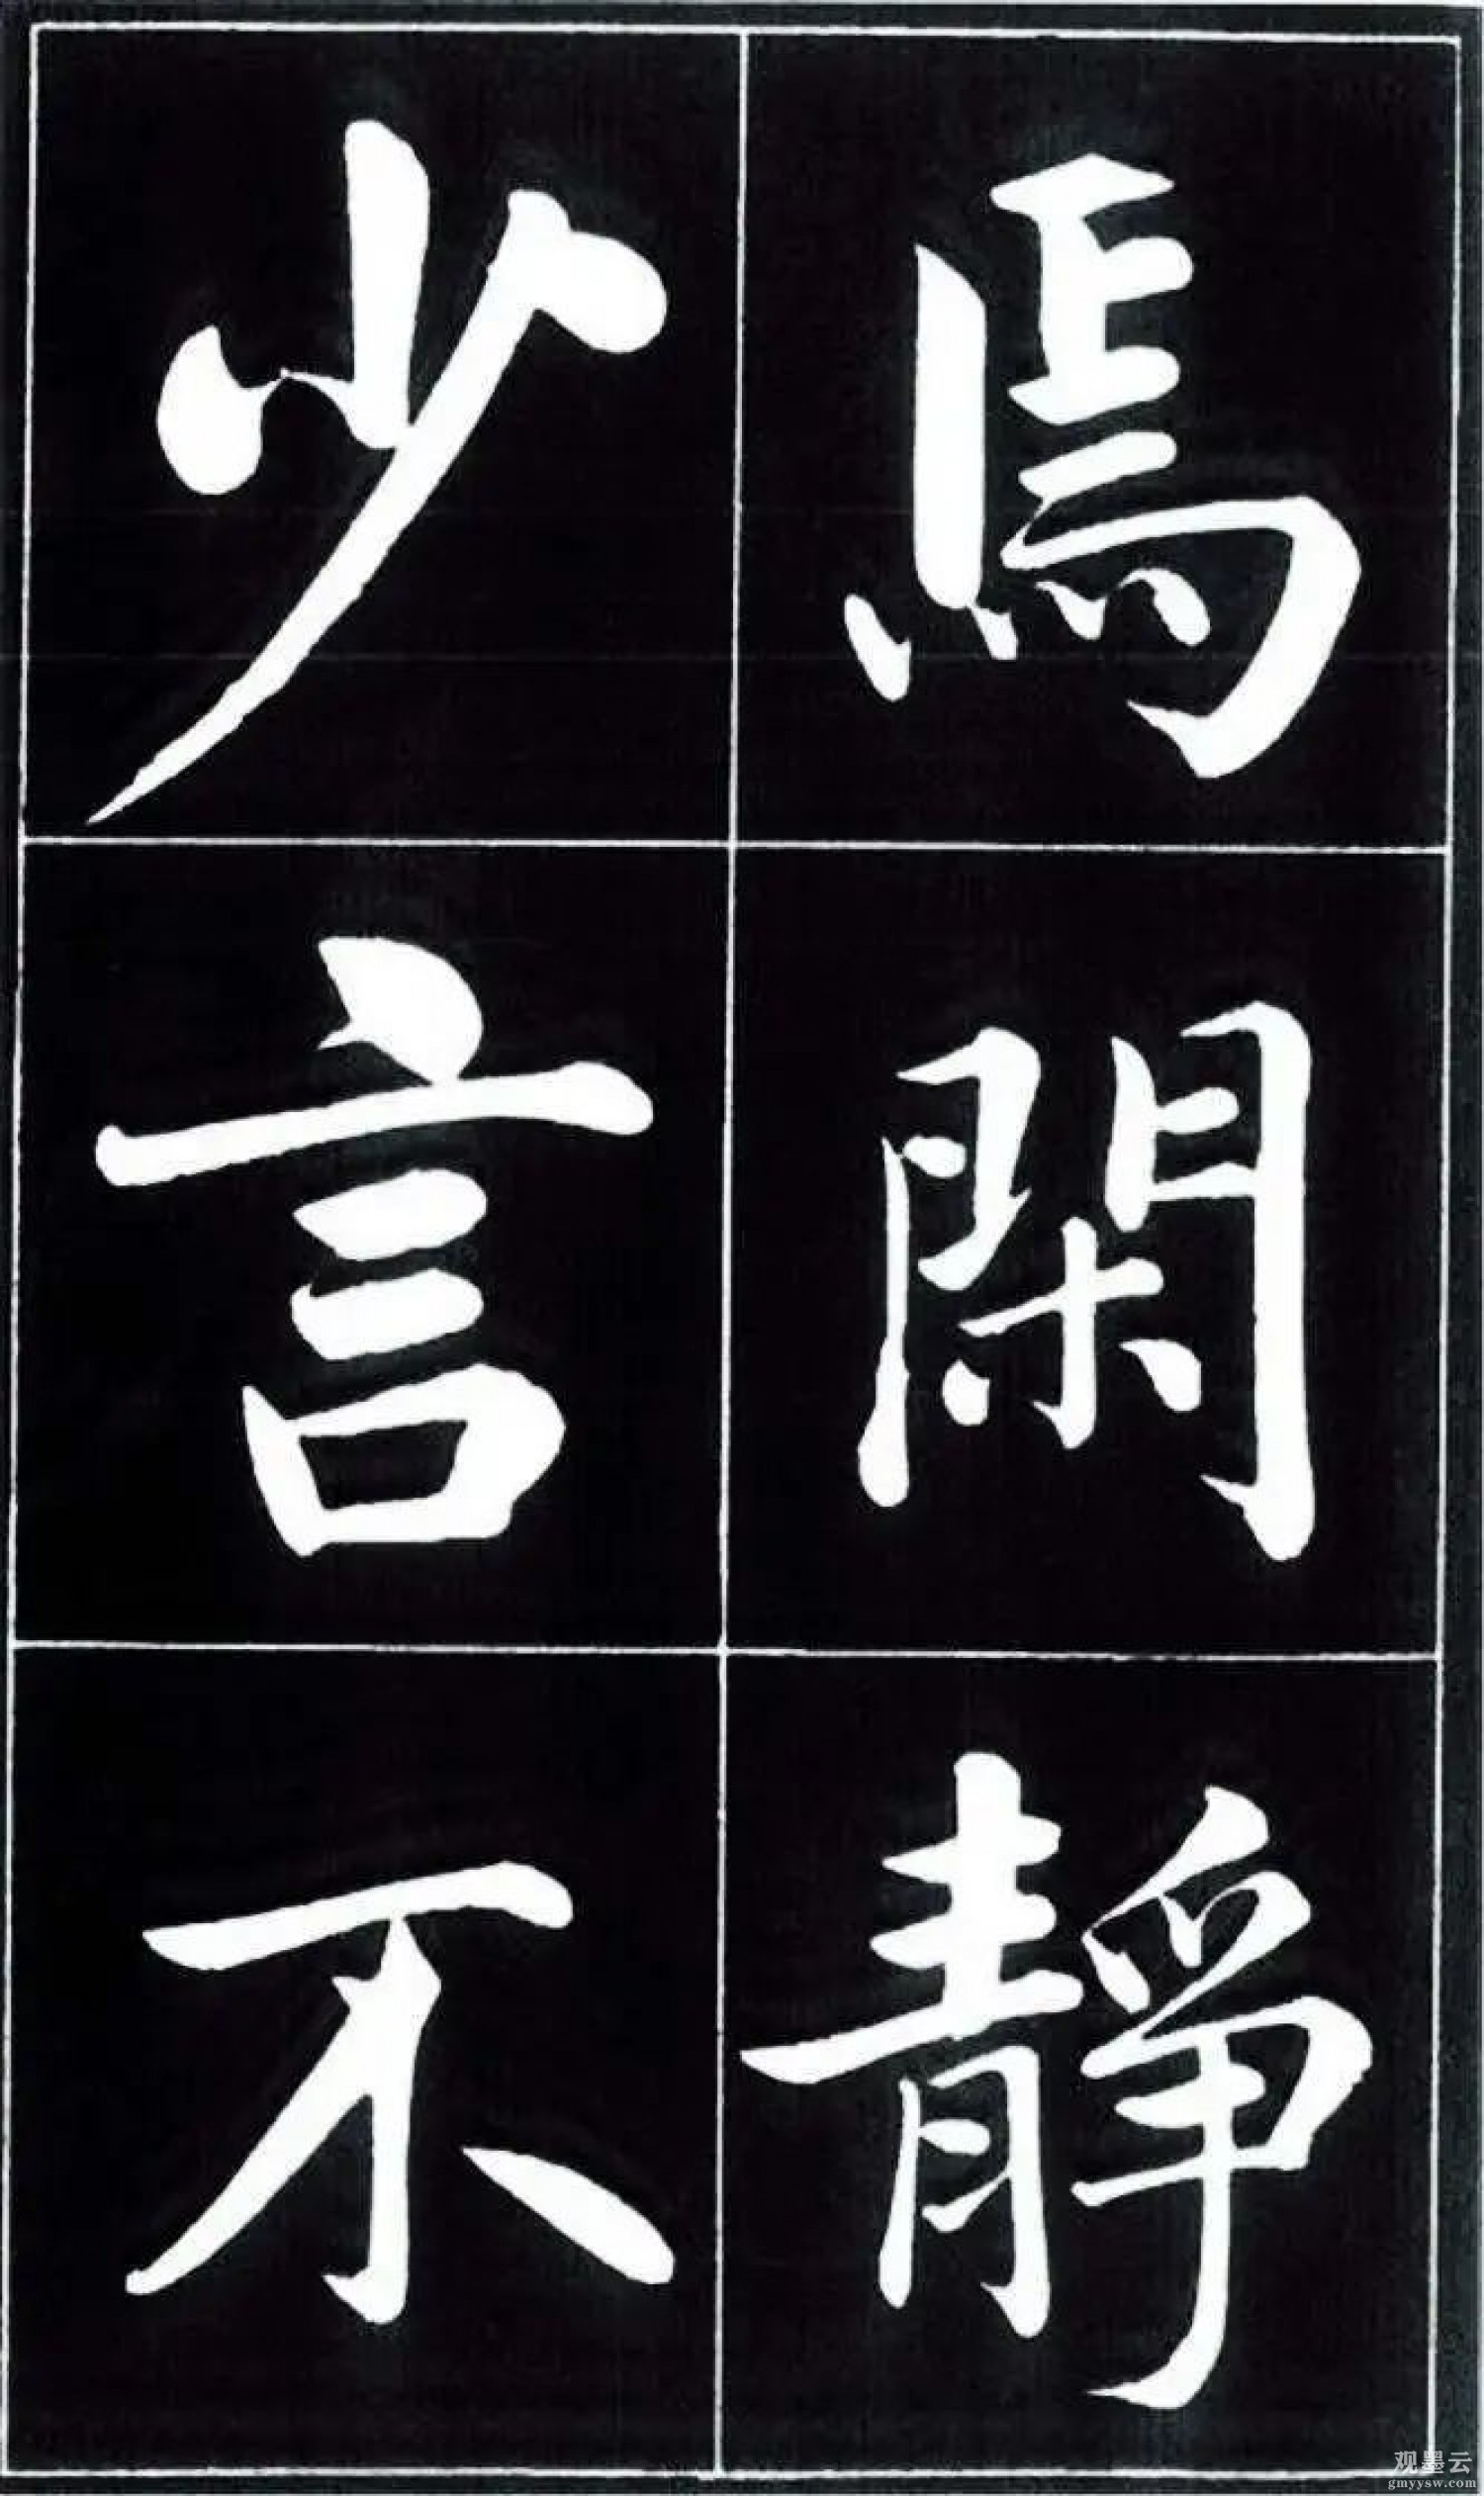 焉閑靜
少言不
观墨云
gmyysw.com